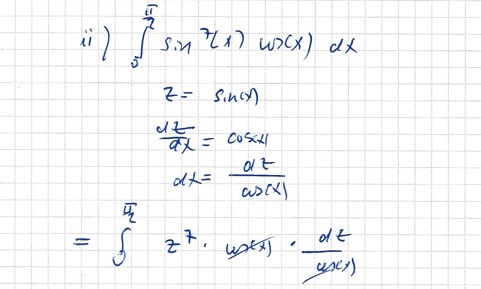 ii) ∫₀^{π/2} sin⁷(x) cos(x) dx
z = sin(x)
dz/dx = cos(x)
dx = dz/cos(x)
= ∫₀^{π/2} z⁷ · cos(x) · dz/cos(x)